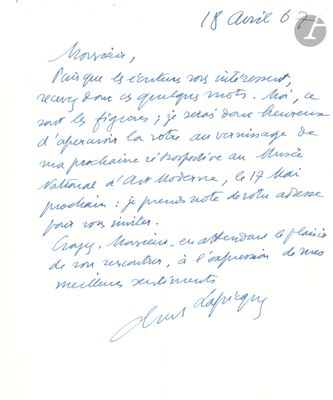 18 Avril 67
Monsieur,
Puisque les écritures vous intéressent,
recevez donc ces quelques mots. Moi, ce
sont les figures ; je serai donc heureux
d'apercevoir la votre au vernissage de
ma prochaine rétrospective au Musée
National d'Art Moderne, le 17 Mai
prochain : je prends note de votre adresse
pour vous inviter.
Croyez, Monsieur, en attendant le plaisir
de vous rencontrer, à l'expression de mes
meilleurs sentiments
Lapicque